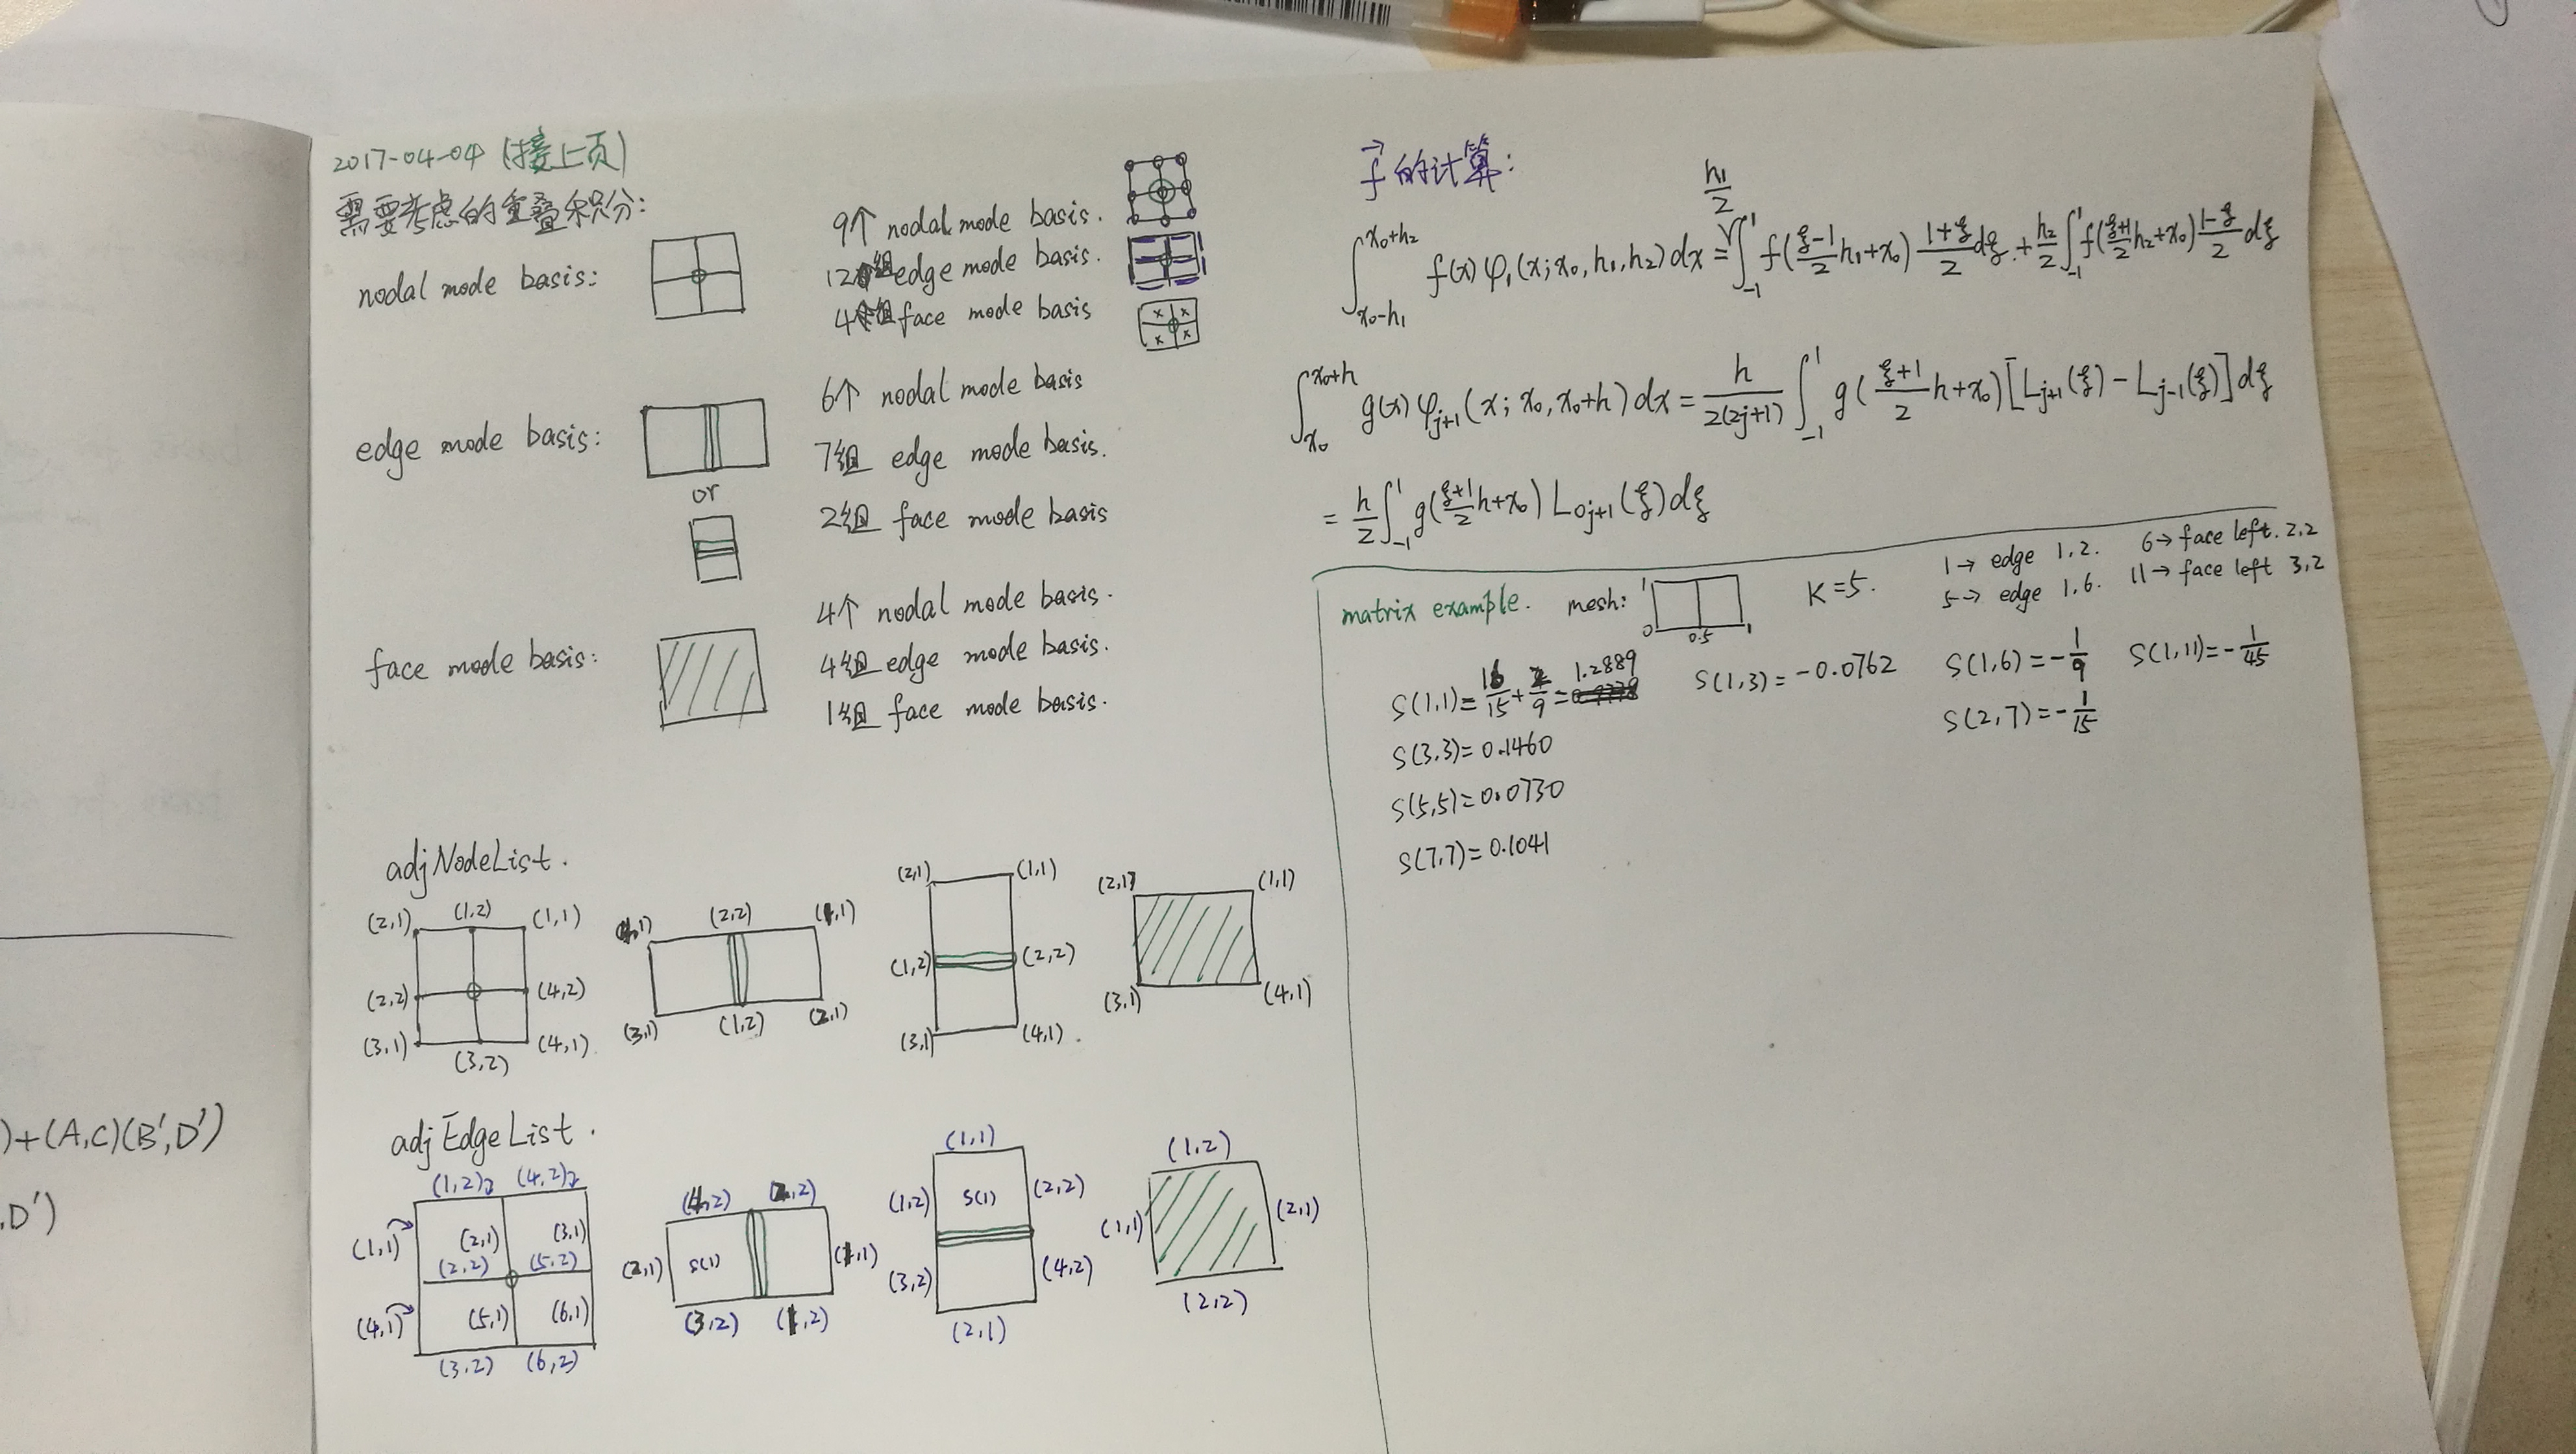 2017-04-04 (接上页)
需要考虑的重叠积分:
nodal mode basis:
9个 nodal mode basis.
12组 edge mode basis.
4组 face mode basis
edge mode basis:
or
6个 nodal mode basis
7组 edge mode basis.
2组 face mode basis
face mode basis:
4个 nodal mode basis.
4组 edge mode basis.
1组 face mode basis.
adjNodeList.
(2,1) (1,2) (1,1)
(2,2) (4,2)
(3,1) (3,2) (4,1)
(2,2) (1,1)
(3,1) (1,2) (2,1)
(2,1) (1,1)
(1,2) (2,2)
(3,1) (4,1)
(2,1) (1,1)
(3,1) (4,1)
adjEdgeList.
(1,2) (4,2)
(1,1) (2,1) (3,1)
(2,2) (5,2)
(4,1) (5,1) (6,1)
(3,2) (6,2)
(4,2) (2,2)
(2,1) S(1) (1,1)
(3,2) (1,2)
(1,1)
(1,2) S(1) (2,2)
(3,2) (4,2)
(2,1)
(1,2)
(1,1) (2,1)
(2,2)
)+(A,C)(B',D')
,D')
f⃗ 的计算:
∫_{x₀-h₁}^{x₀+h₂} f(x) φ₁(x; x₀, h₁, h₂) dx = h₁/2 ∫_{-1}^{1} f((ξ-1)/2 h₁+x₀) (1+ξ)/2 dξ + h₂/2 ∫_{-1}^{1} f((ξ+1)/2 h₂+x₀) (1-ξ)/2 dξ
∫_{x₀}^{x₀+h} g(x) φ_{j+1}(x; x₀, x₀+h) dx = h/(2(2j+1)) ∫_{-1}^{1} g((ξ+1)/2 h+x₀) [L_{j+1}(ξ) - L_{j-1}(ξ)] dξ
= h/2 ∫_{-1}^{1} g((ξ+1)/2 h+x₀) Lo_{j+1}(ξ) dξ
matrix example. mesh: 1 0 0.5 1 K=5.
1→ edge 1,2. 6→ face left. 2,2
5→ edge 1,6. 11→ face left 3,2
S(1,1)= 16/15 + 2/9 = 1.2889 S(1,3)= -0.0762 S(1,6)= -1/9 S(1,11)= -1/45
S(2,7)= -1/15
S(3,3)= 0.1460
S(5,5)= 0.0730
S(7,7)= 0.1041